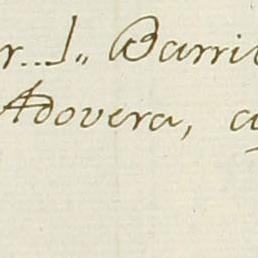 r...]„ Barri
Adovera, a